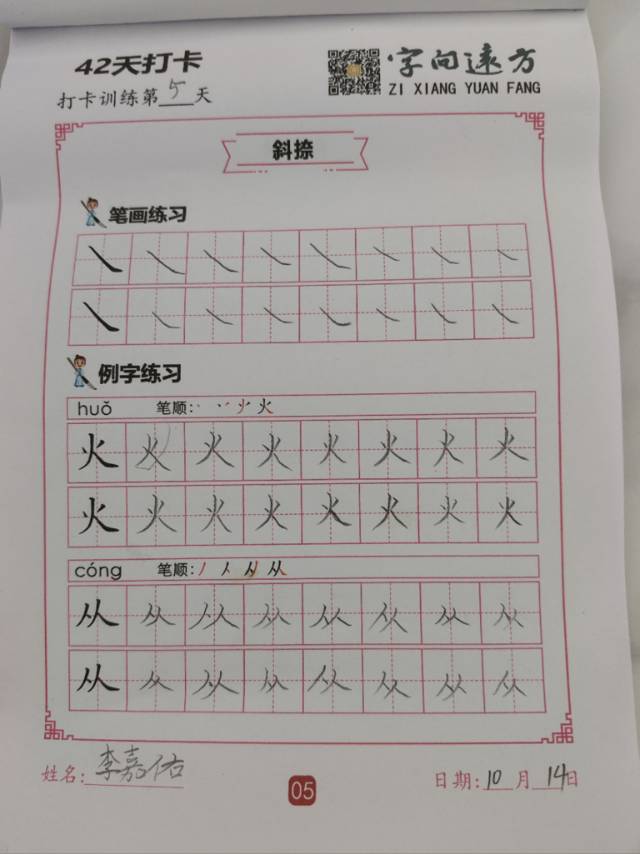 42天打卡
字向远方
打卡训练第5天
ZI XIANG YUAN FANG
斜捺
笔画练习
例字练习
huǒ 笔顺: 火
火 火 火 火 火 火 火 火
火 火 火 火 火 火 火 火
cóng 笔顺: 从
从 从 从 从 从 从 从 从
从 从 从 从 从 从 从 从
姓名: 李嘉佑
05
日期: 10 月 14 日